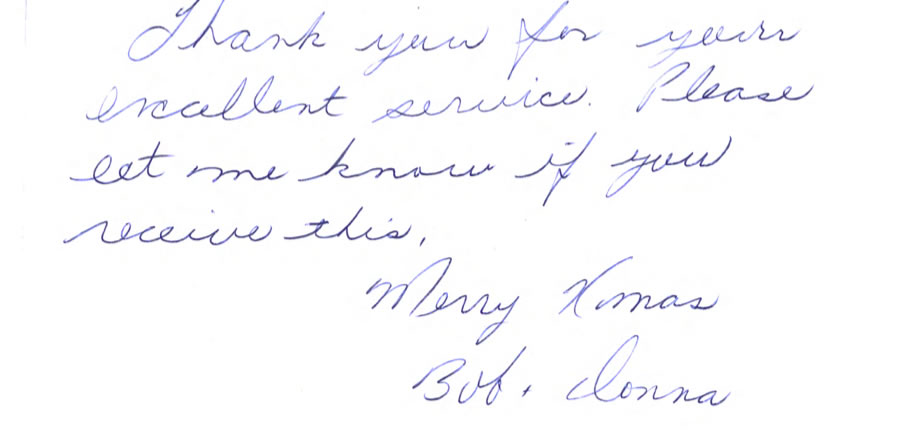 Thank you for your
excellent service. Please
let me know if you
receive this.
Merry Xmas
Bob + Donna